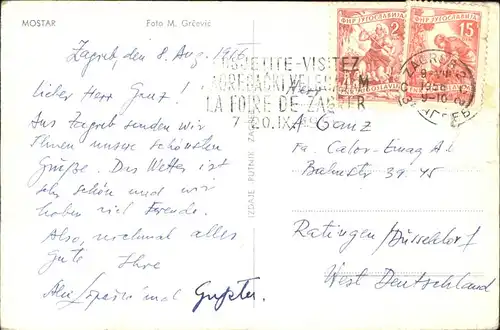 MOSTAR
Foto M. Grčević
Zagreb, den 8. Aug. 1956
Lieber Herr Genz!
Aus Zagreb senden wir
Ihnen unsere schönsten
Grüße. Das Wetter ist
sehr schön und wir
haben viel Freude.
Also, nochmal alles
Gute Ihre
und
IZDAJE PUTNIK ZAGREB
POSJETITE-VISITEZ
ZAGREBAČKI VELESAJAM
LA FOIRE DE ZAGREB
7 20.IX.
ФНР ЈУГОСЛАВИЈА
2
ФНР ЈУГОСЛАВИЈА
15
ZAGREB
8-VIII
1956
9-10
ЗАГРЕБ
Herr
A Genz
Fa. Calor-Emag A.G.
Bahnstr 39-45
Ratingen/Düsseldorf
West Deutschland